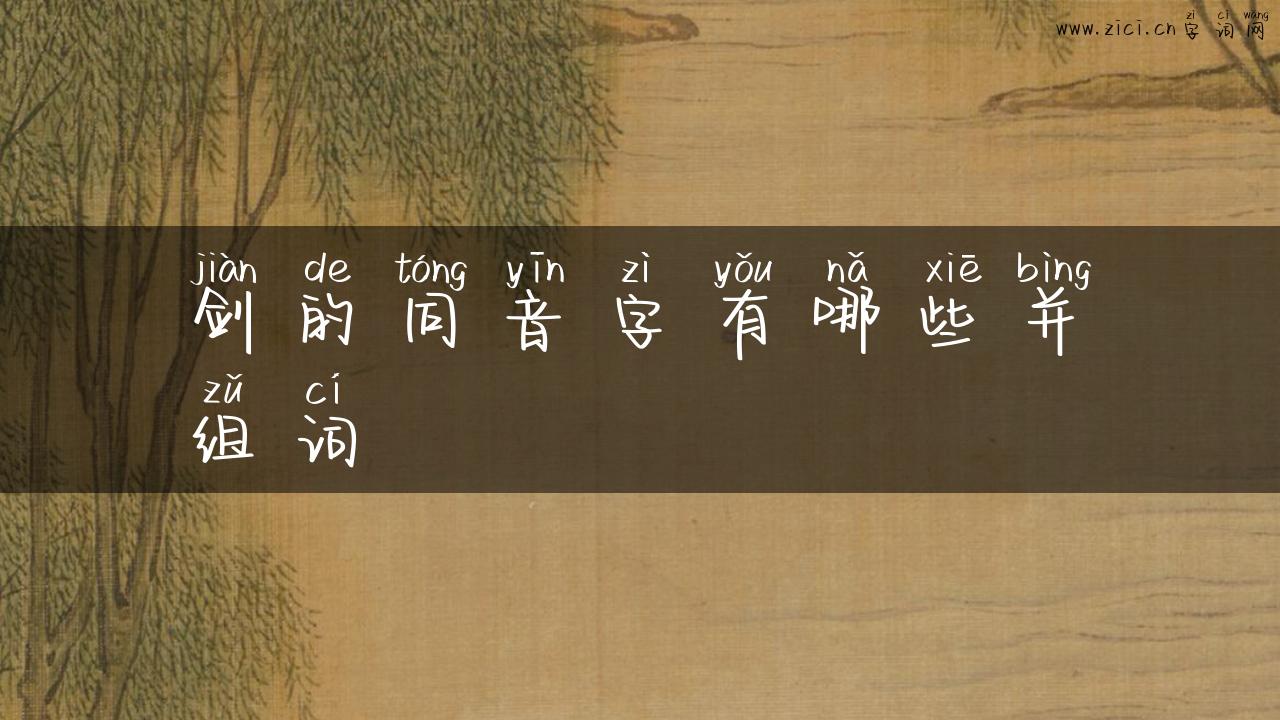 zì cí wǎng
www.zici.cn 字 词 网
jiàn de tóng yīn zì yǒu nǎ xiē bìng
剑 的 同 音 字 有 哪 些 并
zǔ cí
组 词